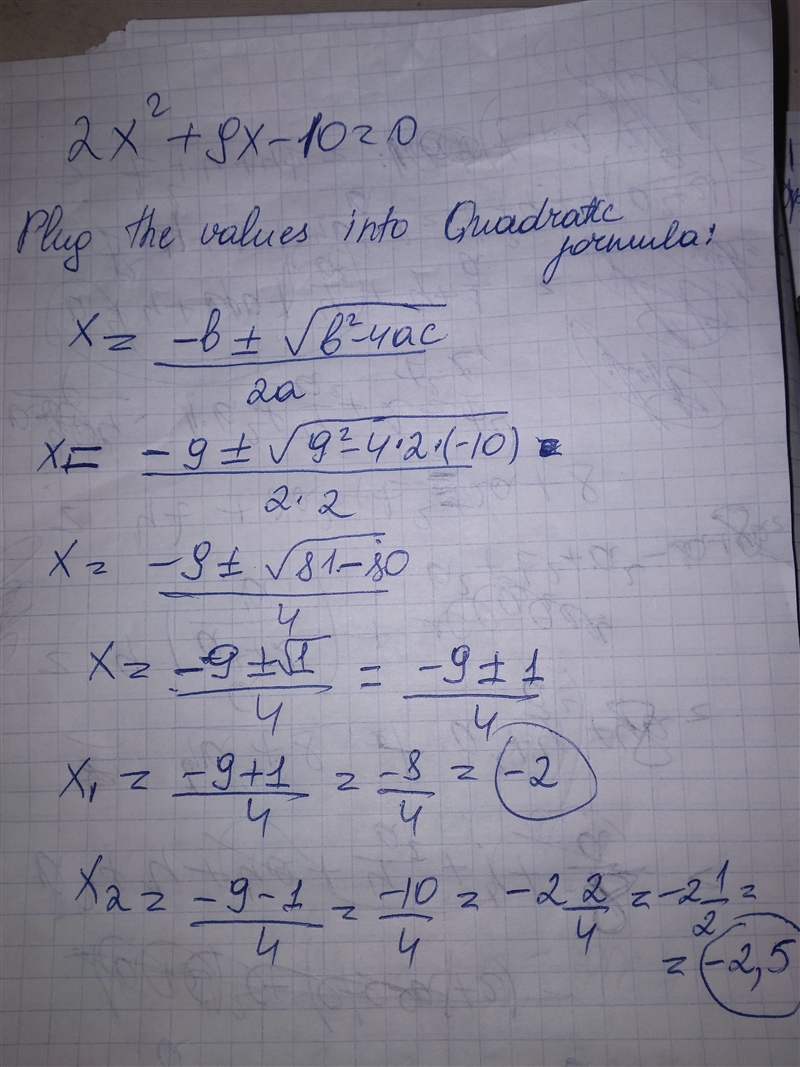 2x² + 9x - 10 = 0
Plug the values into Quadratic
formula:
x = (-b ± √(b² - 4ac)) / 2a
x = (-9 ± √(9² - 4·2·(-10))) / 2·2
x = (-9 ± √(81 - 80)) / 4
x = (-9 ± √1) / 4 = (-9 ± 1) / 4
x₁ = (-9 + 1) / 4 = -8/4 = -2
x₂ = (-9 - 1) / 4 = -10/4 = -2 2/4 = -2 1/2 =
= -2,5